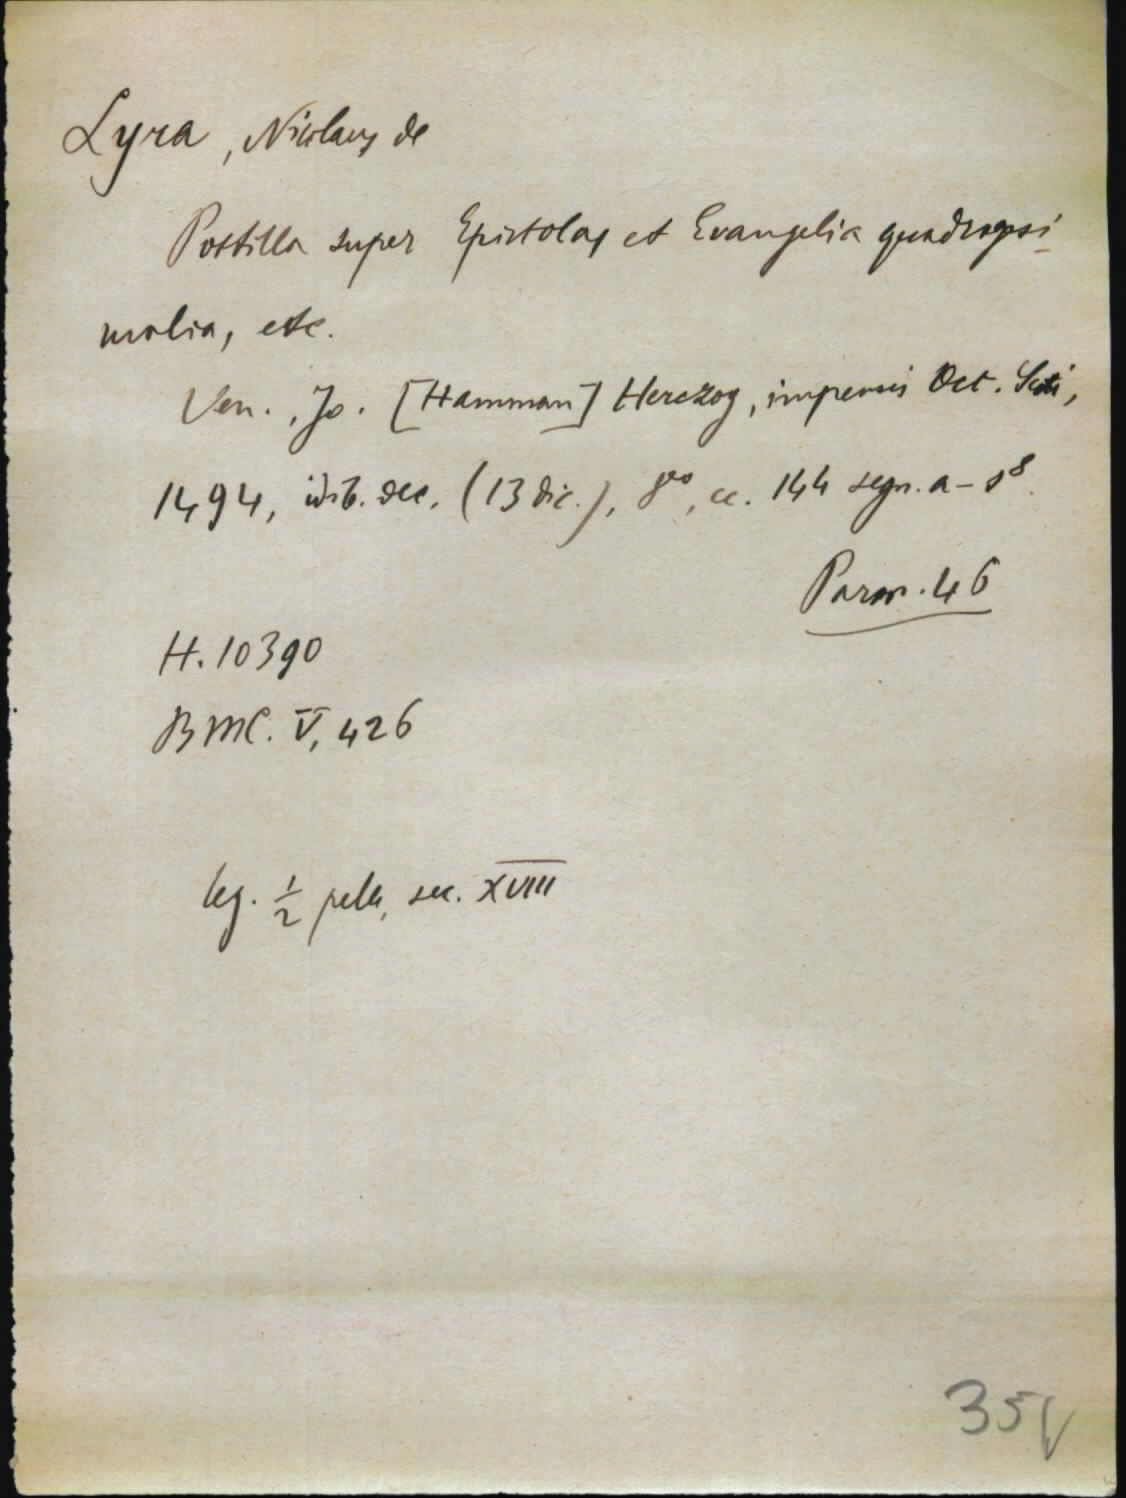 Lyra, Nicolaus de
Postilla super Epistolas et Evangelia quadragesi-
malia, etc.
Ven., Jo. [Hamman] Herczog, impensis Oct. Scoti,
1494, idib. dec. (13 dic.), 8vo, cc. 144 segn. a-s8.
Parm. 46
H. 10390
BMC. V, 426
leg. 1/2 pelle, sec. XVIII
35